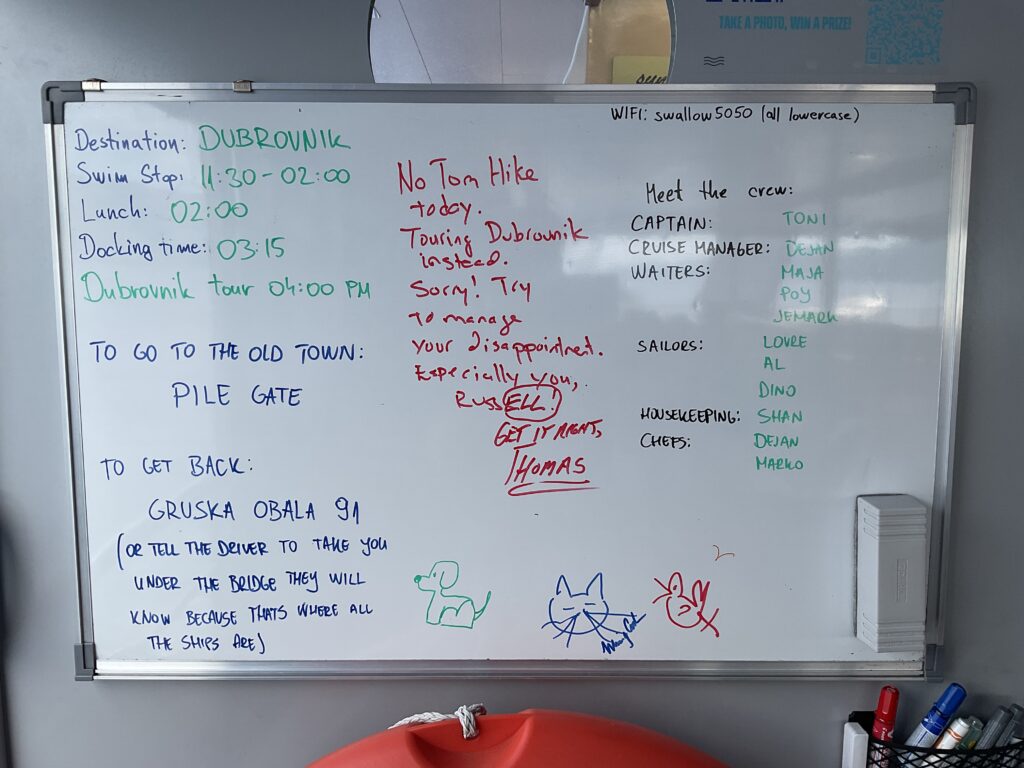 TAKE A PHOTO, WIN A PRIZE!
WIFI: swallow5050 (all lowercase)
Destination: DUBROVNIK
Swim Stop: 11:30 - 02:00
Lunch: 02:00
Docking time: 03:15
Dubrovnik tour 04:00 PM
TO GO TO THE OLD TOWN:
PILE GATE
TO GET BACK:
GRUSKA OBALA 91
(OR TELL THE DRIVER TO TAKE YOU
UNDER THE BRIDGE THEY WILL
KNOW BECAUSE THATS WHERE ALL
THE SHIPS ARE)
No Tom Hike
today.
Touring Dubrovnik
instead.
Sorry! Try
to manage
your disappointment.
Especially you,
RUSSELL!
GET IT RIGHT,
THOMAS
Meet the crew:
CAPTAIN: TONI
CRUISE MANAGER: DEJAN
WAITERS: MAJA
POY
JEMARK
SAILORS: LOVRE
AL
DINO
HOUSEKEEPING: SHAN
CHEFS: DEJAN
MARKO